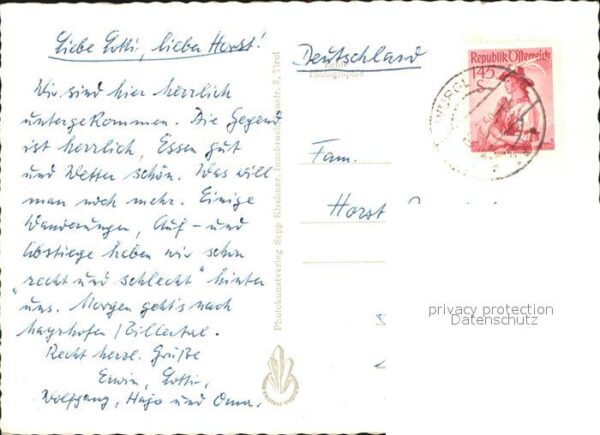 Liebe Lotti, lieber Horst!
Wir sind hier herrlich
untergekommen. Die Gegend
ist herrlich, Essen gut
und Wetter schön. Was will
man noch mehr. Einige
Wanderungen, Auf- und
Abstiege haben wir schon
"recht und schlecht" hinter
uns. Morgen geht's nach
Mayrhofen / Zillertal.
Recht herzl. Grüße
Erwin, Lotti,
Wolfgang, Hajo und Oma.
Photokunstverlag Sepp Kirchner, Tirol
Deutschland
Photographie
Republik Österreich
145
S
Fam.
Horst
privacy protection
Datenschutz